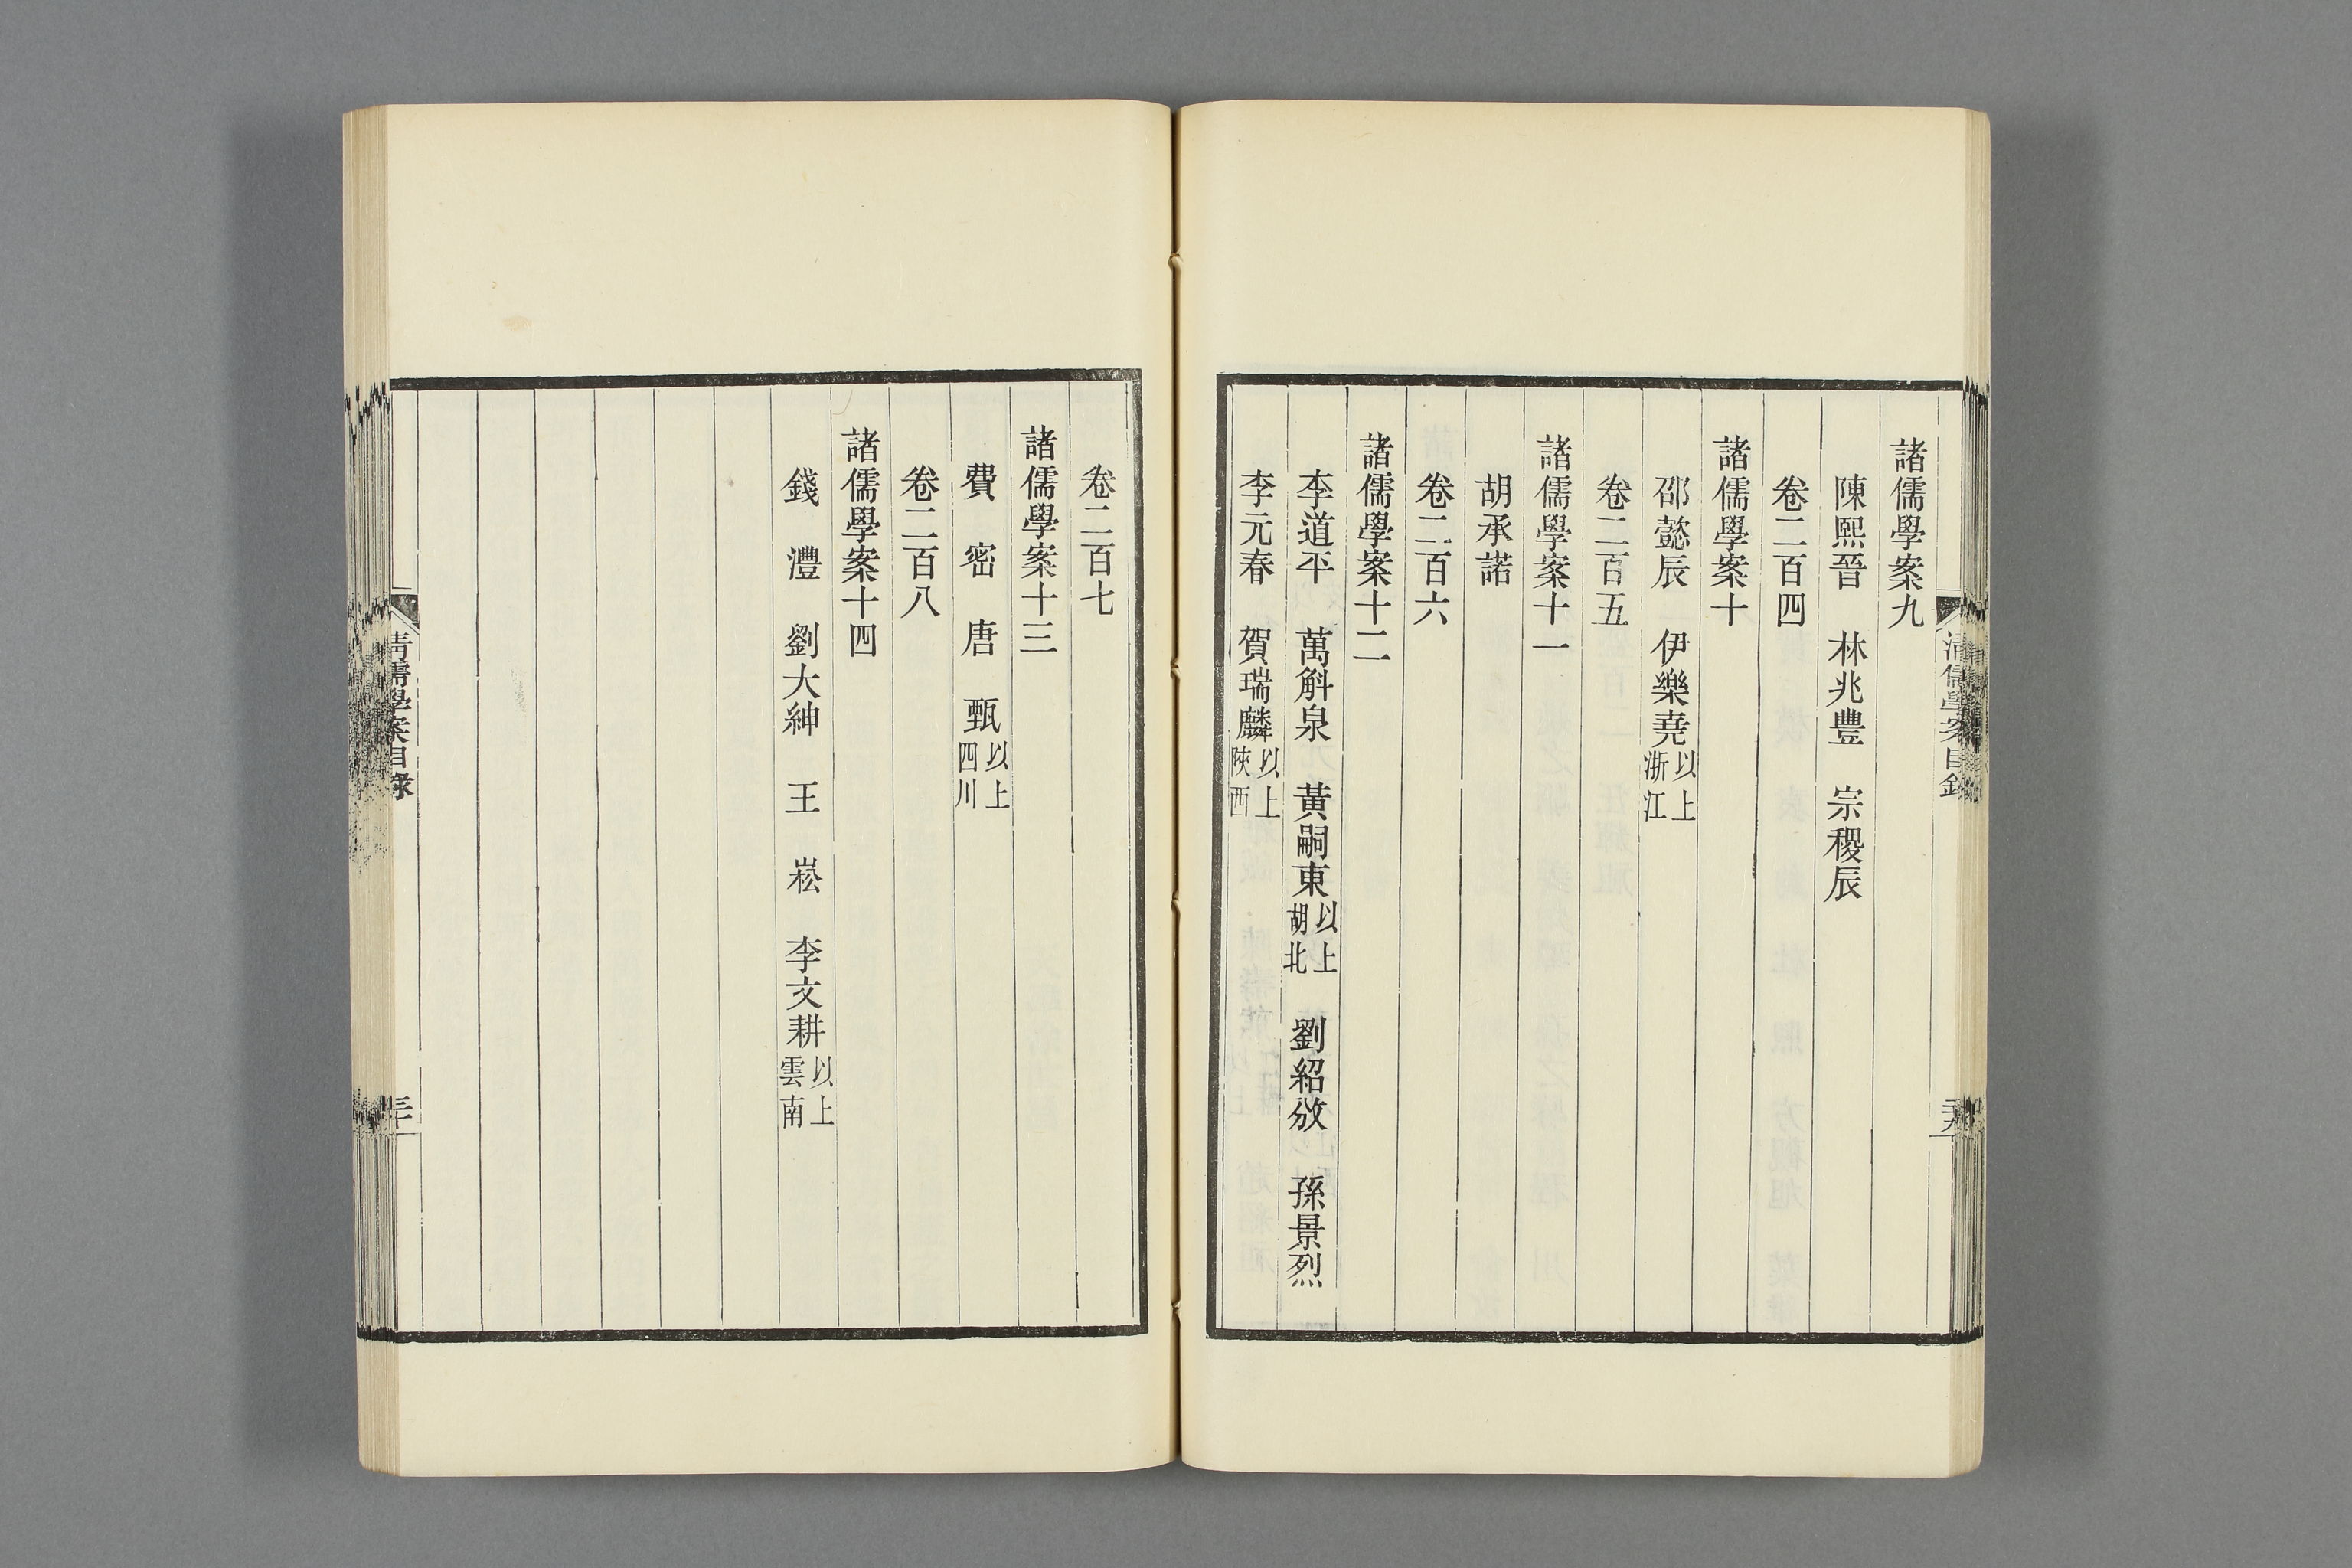 諸儒學案九
陳熙晉　林兆豐　宗稷辰
卷二百四
諸儒學案十
邵懿辰　伊樂堯以上浙江
卷二百五
諸儒學案十一
胡承諾
卷二百六
諸儒學案十二
李道平　萬斛泉　黃嗣東以上胡北　劉紹攽　孫景烈
李元春　賀瑞麟以上陝西
清儒學案目錄
卷二百七
諸儒學案十三
費　密　唐　甄以上四川
卷二百八
諸儒學案十四
錢　灃　劉大紳　王　崧　李文耕以上雲南
清儒學案目錄
三十